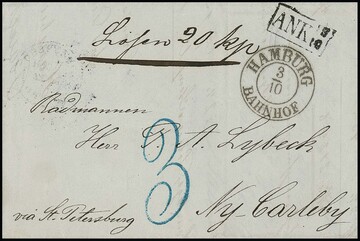 Lösen 20 kop
ANK 13/10
HAMBURG
3/10
BAHNHOF
Rådmannen
Herr F. A. Lybeck
3
via St. Petersburg
Ny-Carleby